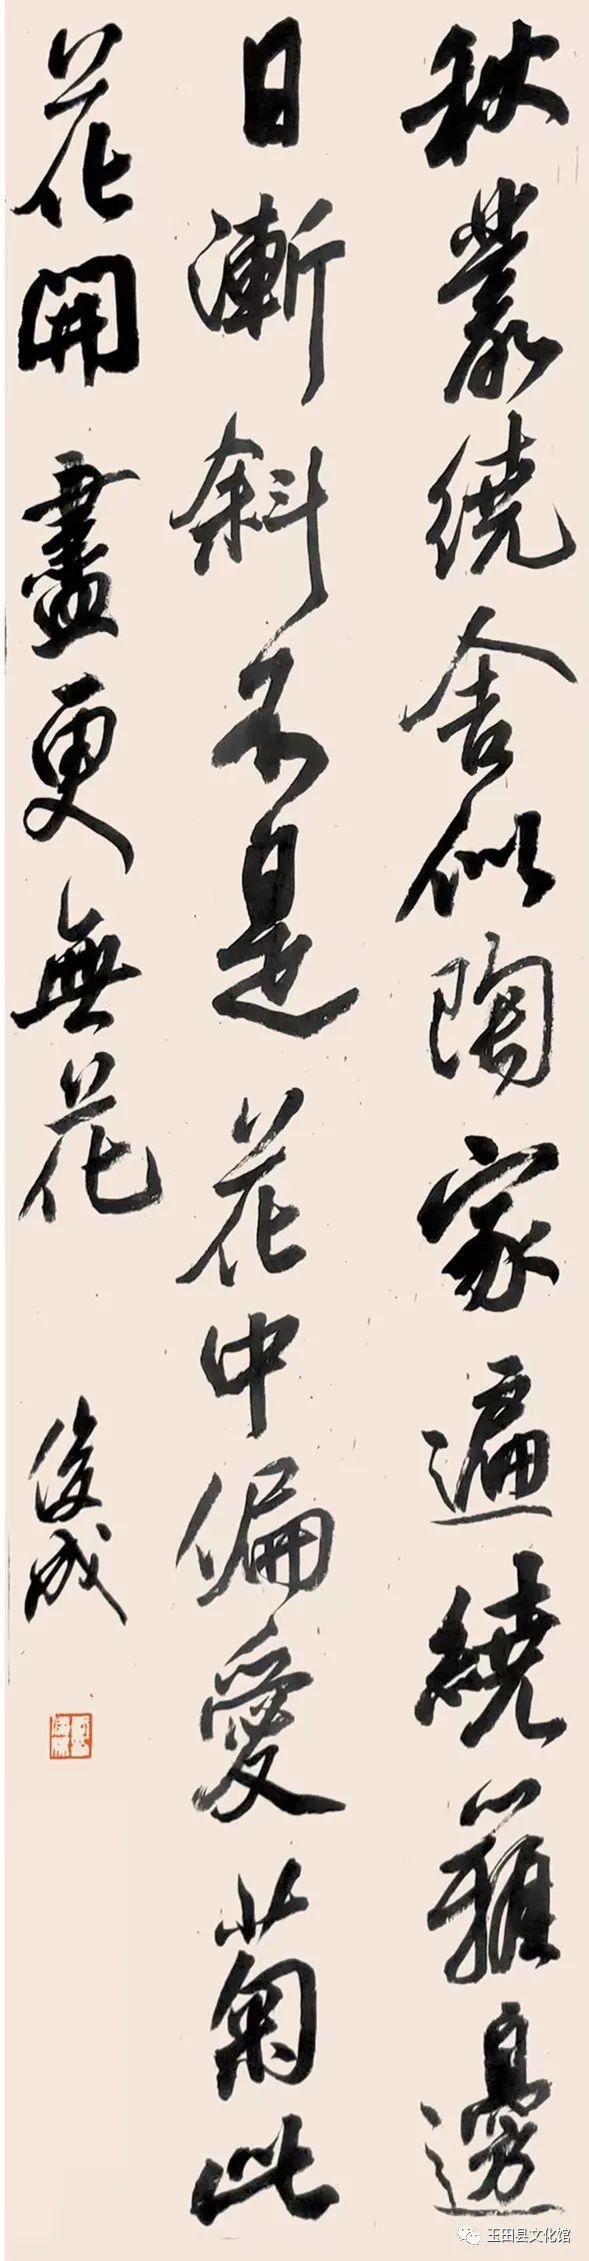 秋叢繞舍似陶家遍繞籬邊
日漸斜不是花中偏愛菊此
花開盡更無花
俊成
玉田县文化馆